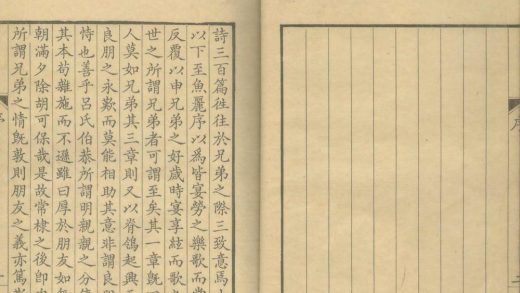 詩三百篇往往於兄弟之際三致意焉
以下至魚麗序以爲皆宴勞之樂歌而常
反覆以申兄弟之好歲時宴享絃而歌
世之所謂兄弟者可謂至矣其一章旣
人莫如兄弟其三章則又以脊鴒起興
良朋之永歎而莫能相助其意非謂良
恃也善乎呂氏伯恭所謂明親親之分
其本苟雜施而不遜雖曰厚於朋友如
朝滿夕除胡可保哉是故常棣之後卽
所謂兄弟之情旣敦則朋友之義亦篤